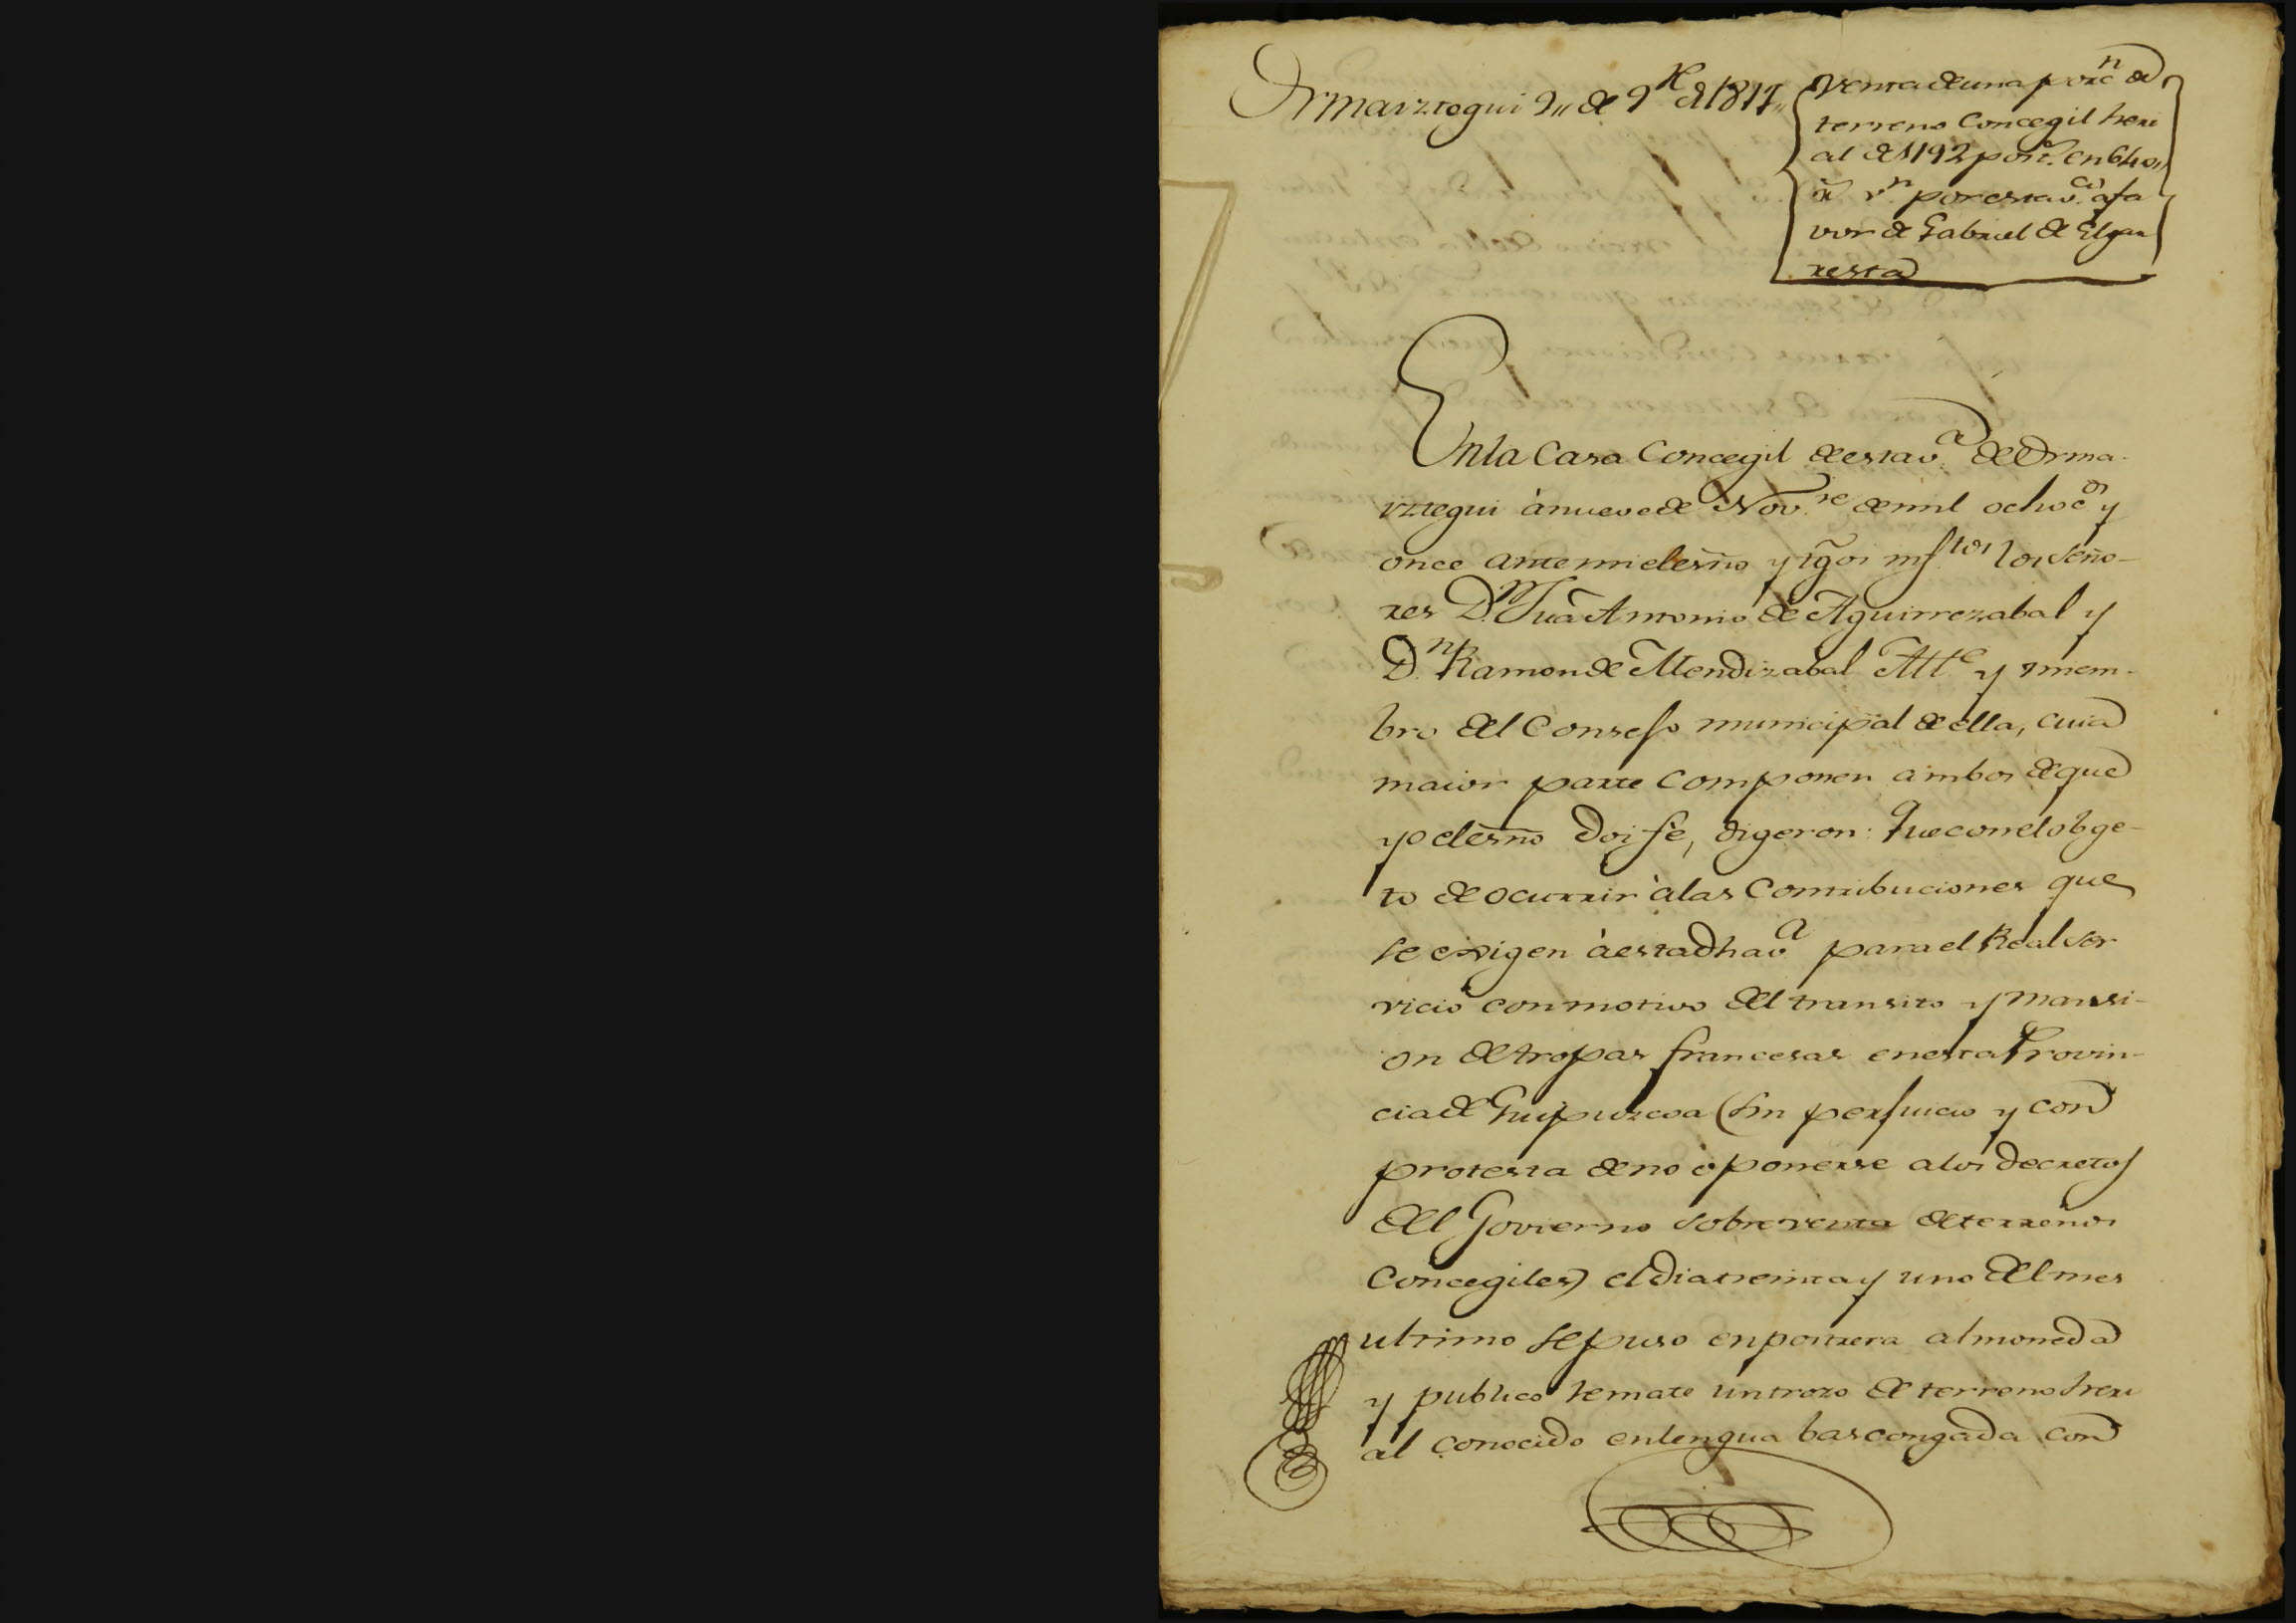 Ormaiztegui 9,, de 9re de 1811,,
Venta de una porcn de
terreno Concegil heri
al de 1192 postˢ. en 640,,
rˢ vn. por esta va. á fa
vor de Gabriel de Elgar
resta
En la Casa Concegil de esta va. de Orma-
iztegui à nueve de Novre. de mil ochocos. y
once ante mi el esño y tgõs inftos. los Seño-
res Dn. Juã Antonio de Aguirrezabal y
Dn. Ramon de Mendizabal Alle. y miem-
bro del Consejo municipal de ella, cuia
maior parte componen ambos de que
yo el esño doi fè, digeron: Que con el obge-
to de ocurrir à las Contribuciones que
se exigen à esta dha va. para el Real Ser-
vicio con motivo del transito y mansi-
on de tropas francesas en esta Provin-
cia de Guipuzcoa (sin perjuicio y con
protesta de no oponerse a los decretos
del Govierno sobre venta de terrenos
Concegiles) el dia treinta y uno del mes
ultimo se puso en postrera almoneda
y publico remate un trozo de terreno heri
al conocido en lengua bascongada con